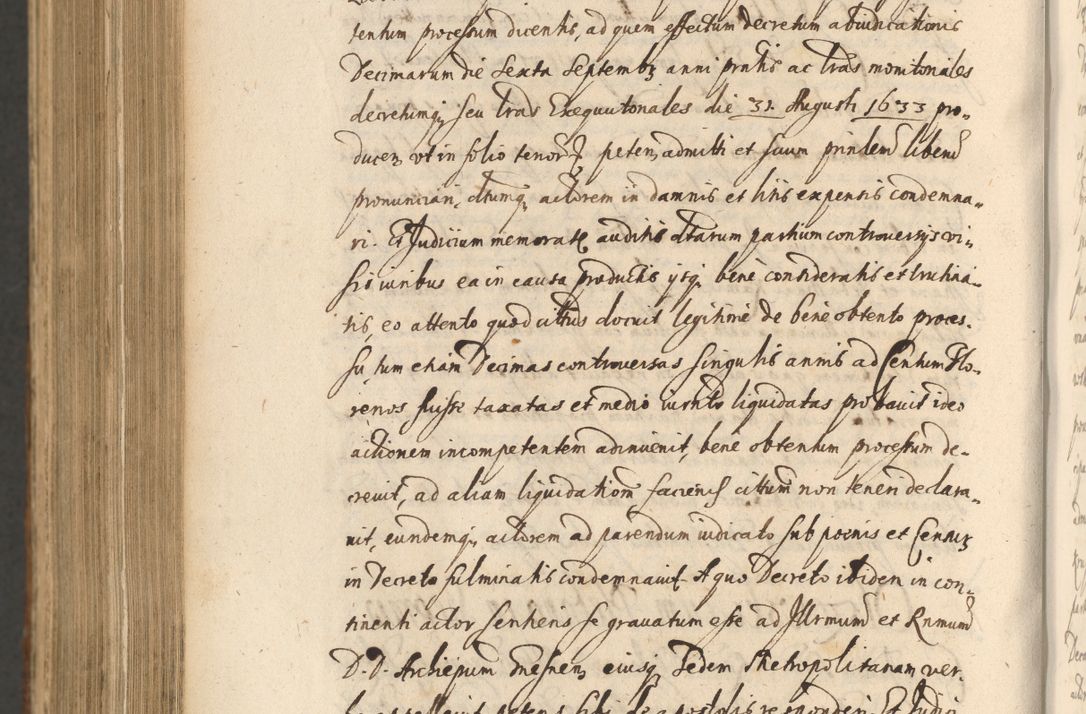 tentum processum dicentis, ad quem effectum decretum abiudicationis
Decimarum die sexta Septembꝫ anni prntis ac lras monitoriales
decretumqꝫ seu lras Exequutoriales die 31. Augusti 1633 pro-
ducen, ut in folio tenorꝫ peten, admitti et suum prinlem liberu
pronunciari, dtumqꝫ actorem in damnis et litis expensis condemna-
ri. Et Judicium memorat auditis dtarum partium controversijs vi-
sis iuribus ea in causa productis ijsqꝫ bene consideratis et trutina-
tis, eo attento quod cittus docuit legitime de bene obtento proces-
su, tum etiam Decimas controversas singulis annis ad Centum Flo-
renos fuisse taxatas et medio iurnto liquidatas probavit ideo
actionem incompetentem adinuenit, bene obtentum processum de-
creuit, ad aliam liquidationem faciend cittum non teneri declara-
uit, eundemqꝫ actorem ad parendum iudicato sub poenis et Censurꝫ
in Decreto fulminatis condemnauit. A quo Decreto ibidem in con-
tinenti actor sentiens se grauatum esse ad Jllrmum et Rnmum
D. D. Archiepum Gnesnen, eiusqꝫ Sedem Metropolitanam ver-